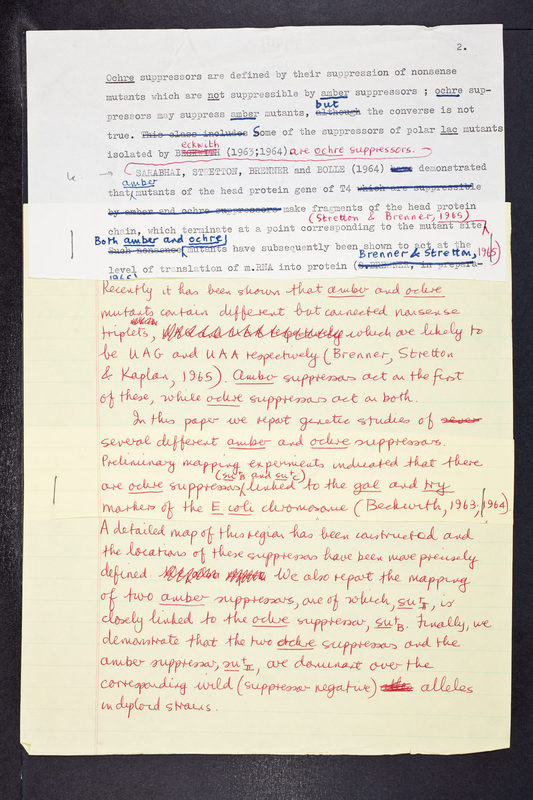 2.
Ochre suppressors are defined by their suppression of nonsense
mutants which are not suppressible by amber suppressors ; ochre sup-
pressors may suppress amber mutants, but although the converse is not
true. This class includes Some of the suppressors of polar lac mutants
isolated by BECKWITH eckwith (1963;1964) are ochre suppressors.
SARABHAI, STRETTON, BRENNER and BOLLE (1964) have demonstrated
that amber mutants of the head protein gene of T4 which are suppressible
by amber and ochre suppressors make fragments of the head protein
(Stretton & Brenner, 1965)
chain, which terminate at a point corresponding to the mutant site
Both amber and ochre
Such nonsense mutants have subsequently been shown to act at the
Brenner & Stretton, 1965)
level of translation of m.RNA into protein (S.BRENNER, in prepara-
Recently it has been shown that amber and ochre
mutants contain different but connected nonsense
triplets, which are likely to
be UAG and UAA respectively (Brenner, Stretton
& Kaplan, 1965). Amber suppressors act on the first
of these, while ochre suppressors act on both.
In this paper we report genetic studies of sever
several different amber and ochre suppressors.
Preliminary mapping experiments indicated that there
(su+B and su+C)
are ochre suppressors linked to the gal and try
markers of the E coli chromosome (Beckwith, 1963, 1964).
A detailed map of this region has been constructed and
the locations of these suppressors have been more precisely
defined We also report the mapping
of two amber suppressors, one of which, su+II, is
closely linked to the ochre suppressor, su+B. Finally, we
demonstrate that the two ochre suppressors and the
amber suppressor, su+II, are dominant over the
corresponding wild (suppressor negative) alleles
in diploid strains.